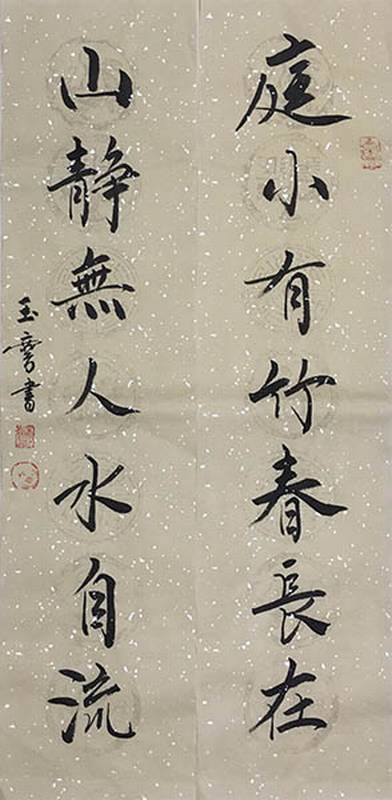 庭小有竹春長在
山靜無人水自流
玉齋書